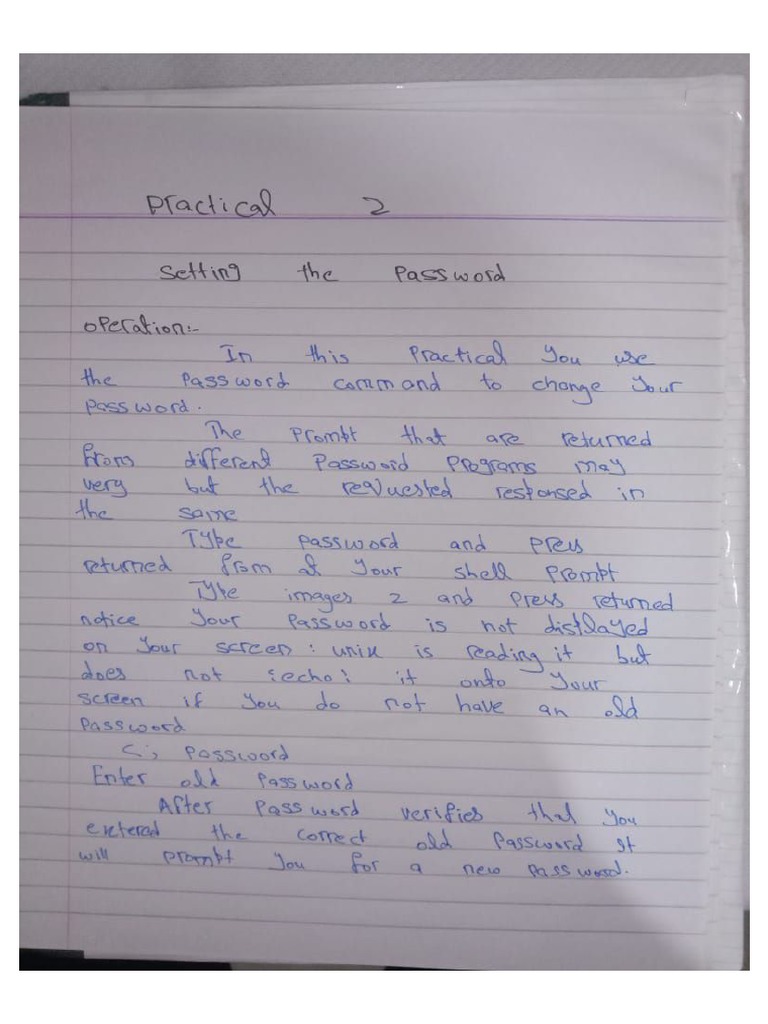 Practical 2
Setting the Password
Operation:-
In this Practical you use
the Password command to change your
Password.
The Prompt that are returned
from different Password Programs may
very but the requested responsed in
the same
Type password and press
returned from at your shell prompt
Type images 2 and press returned
notice your password is not displayed
on your screen : unix is reading it but
does not :echo: it onto your
screen if you do not have an old
Password
C:, Password
Enter old Password
After Password verifies that you
entered the correct old Password it
will prompt you for a new password.